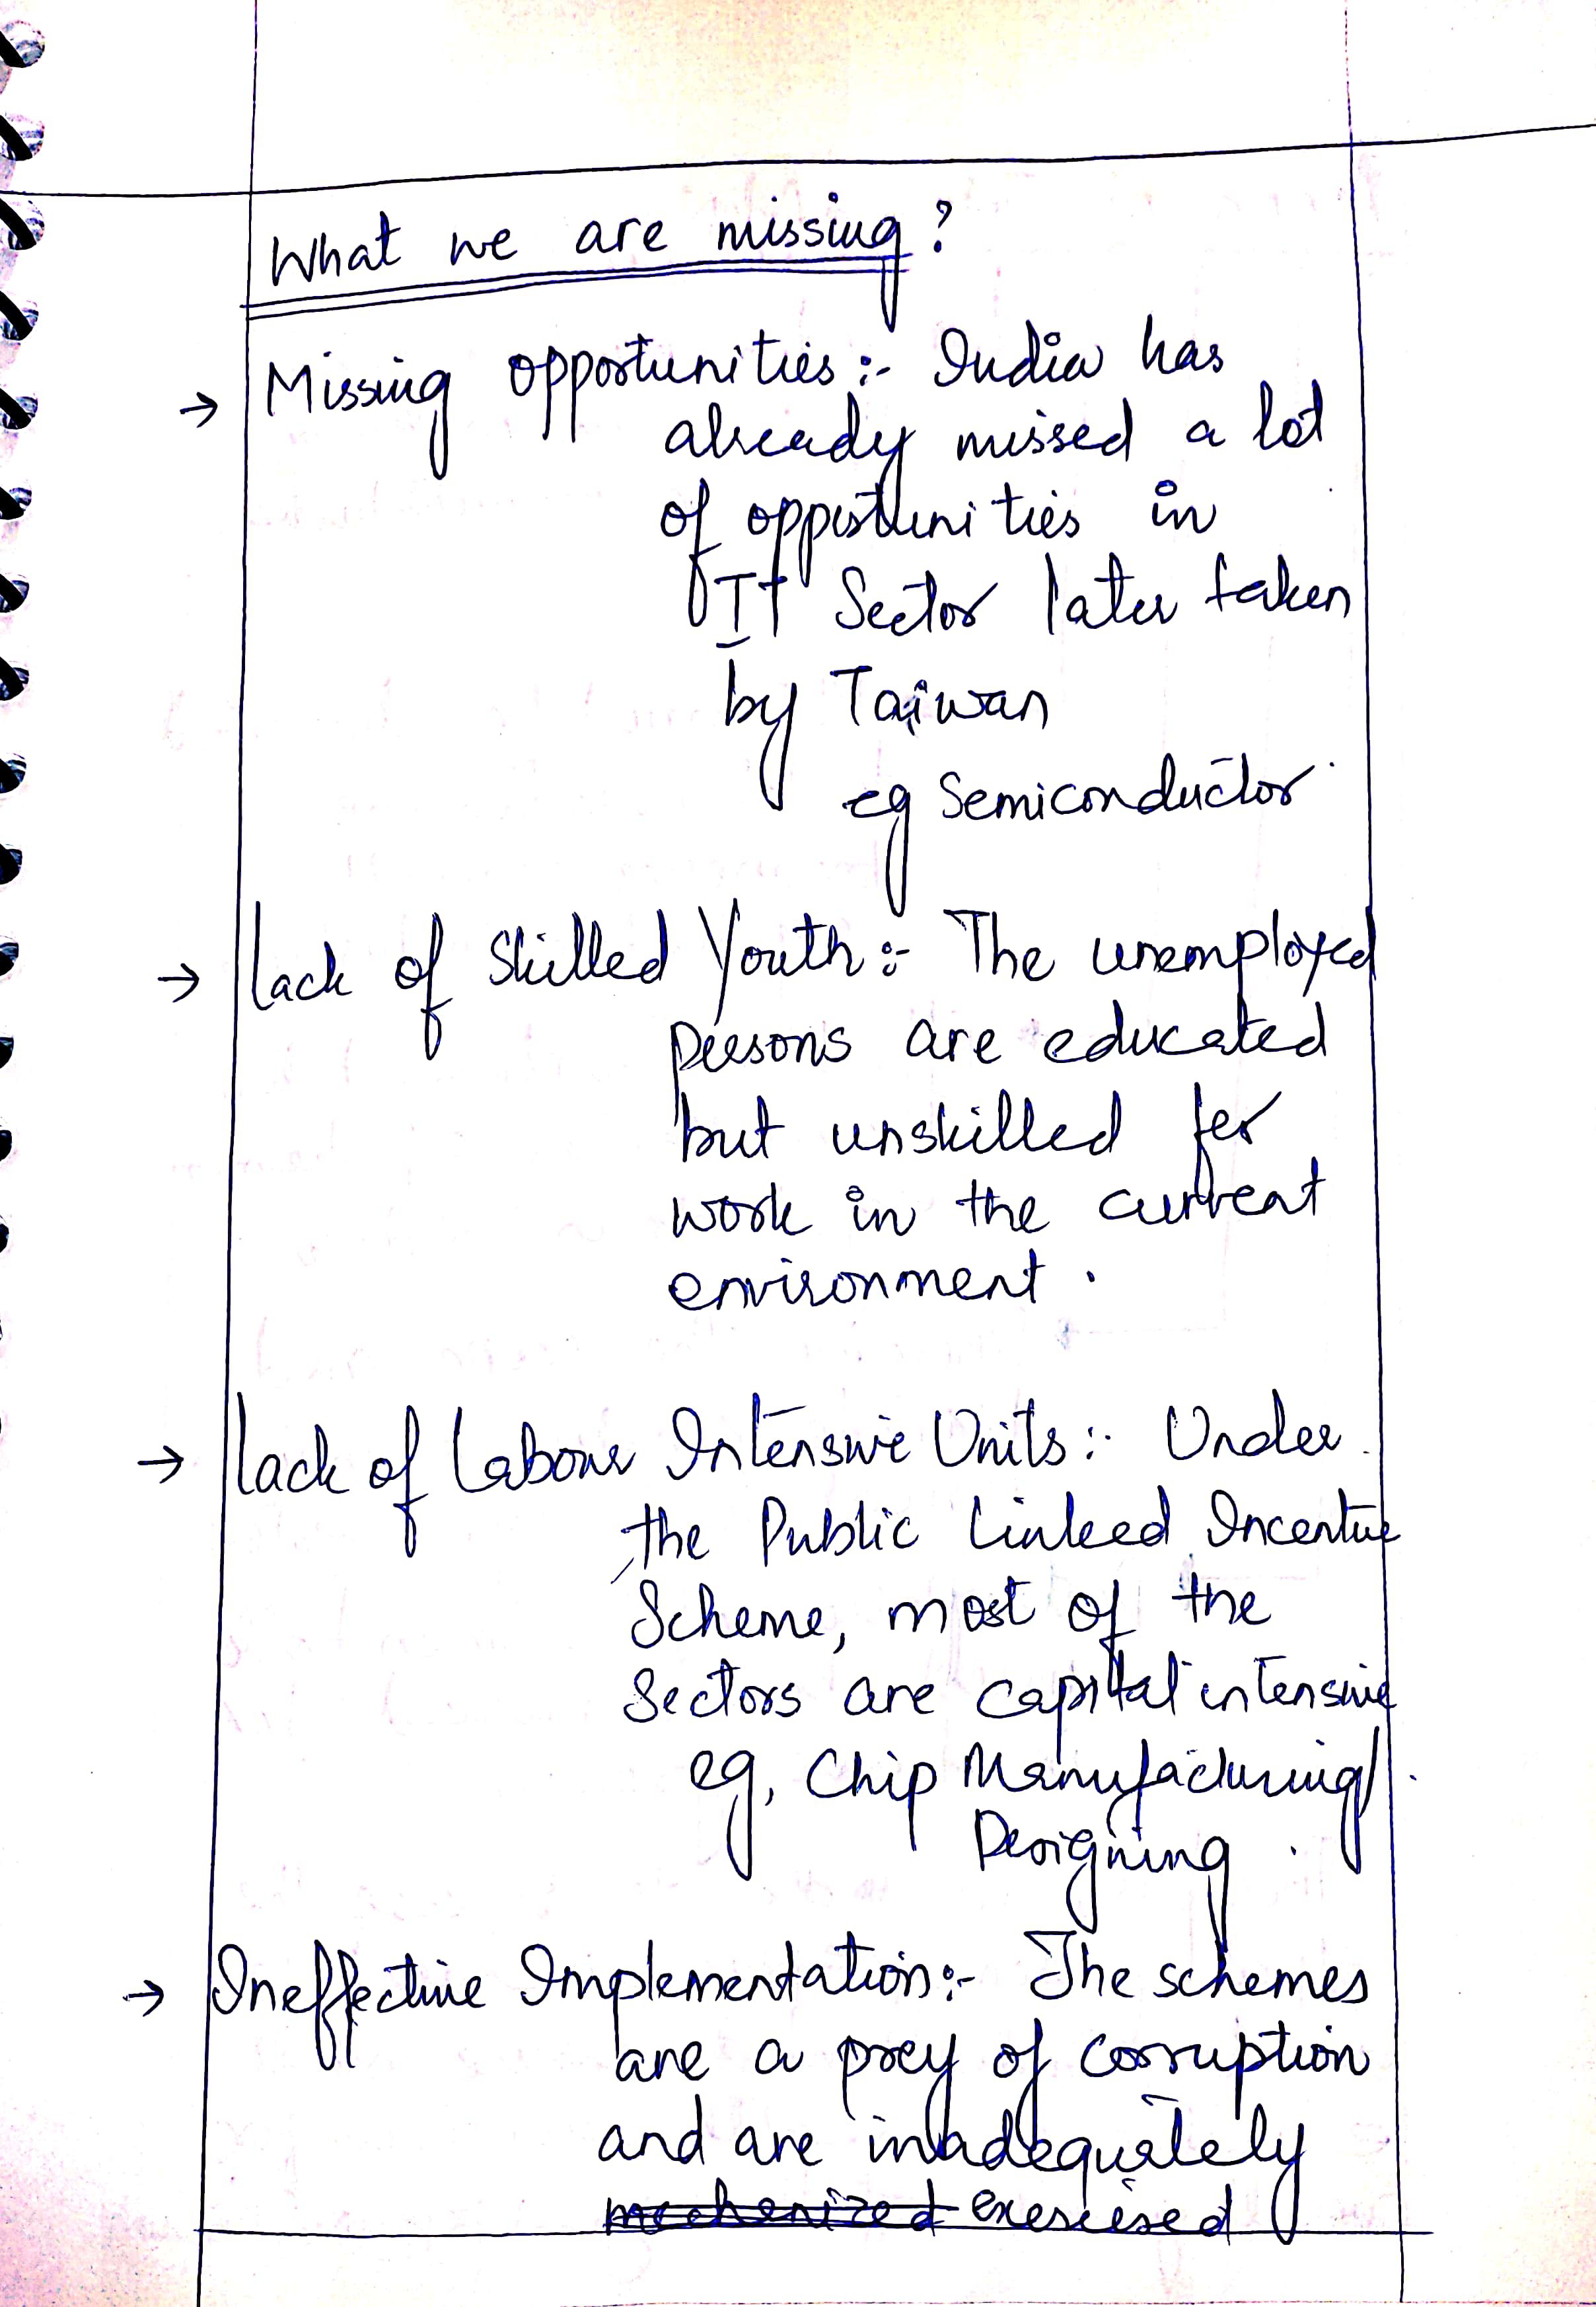 What we are missing?
→ Missing opportunities:- India has
already missed a lot
of opportunities in
IT Sector later taken
by Taiwan
eg Semiconductor
→ lack of skilled Youth:- The unemployed
persons are educated
but unskilled for
work in the current
environment.
→ lack of Labour Intensive Units:- Under
the Public Linked Incentive
Scheme, most of the
Sectors are capital intensive
eg, Chip Manufacturing/
Designing.
→ Ineffective Implementation:- The schemes
are a prey of corruption
and are inadequately
mechanized exercised